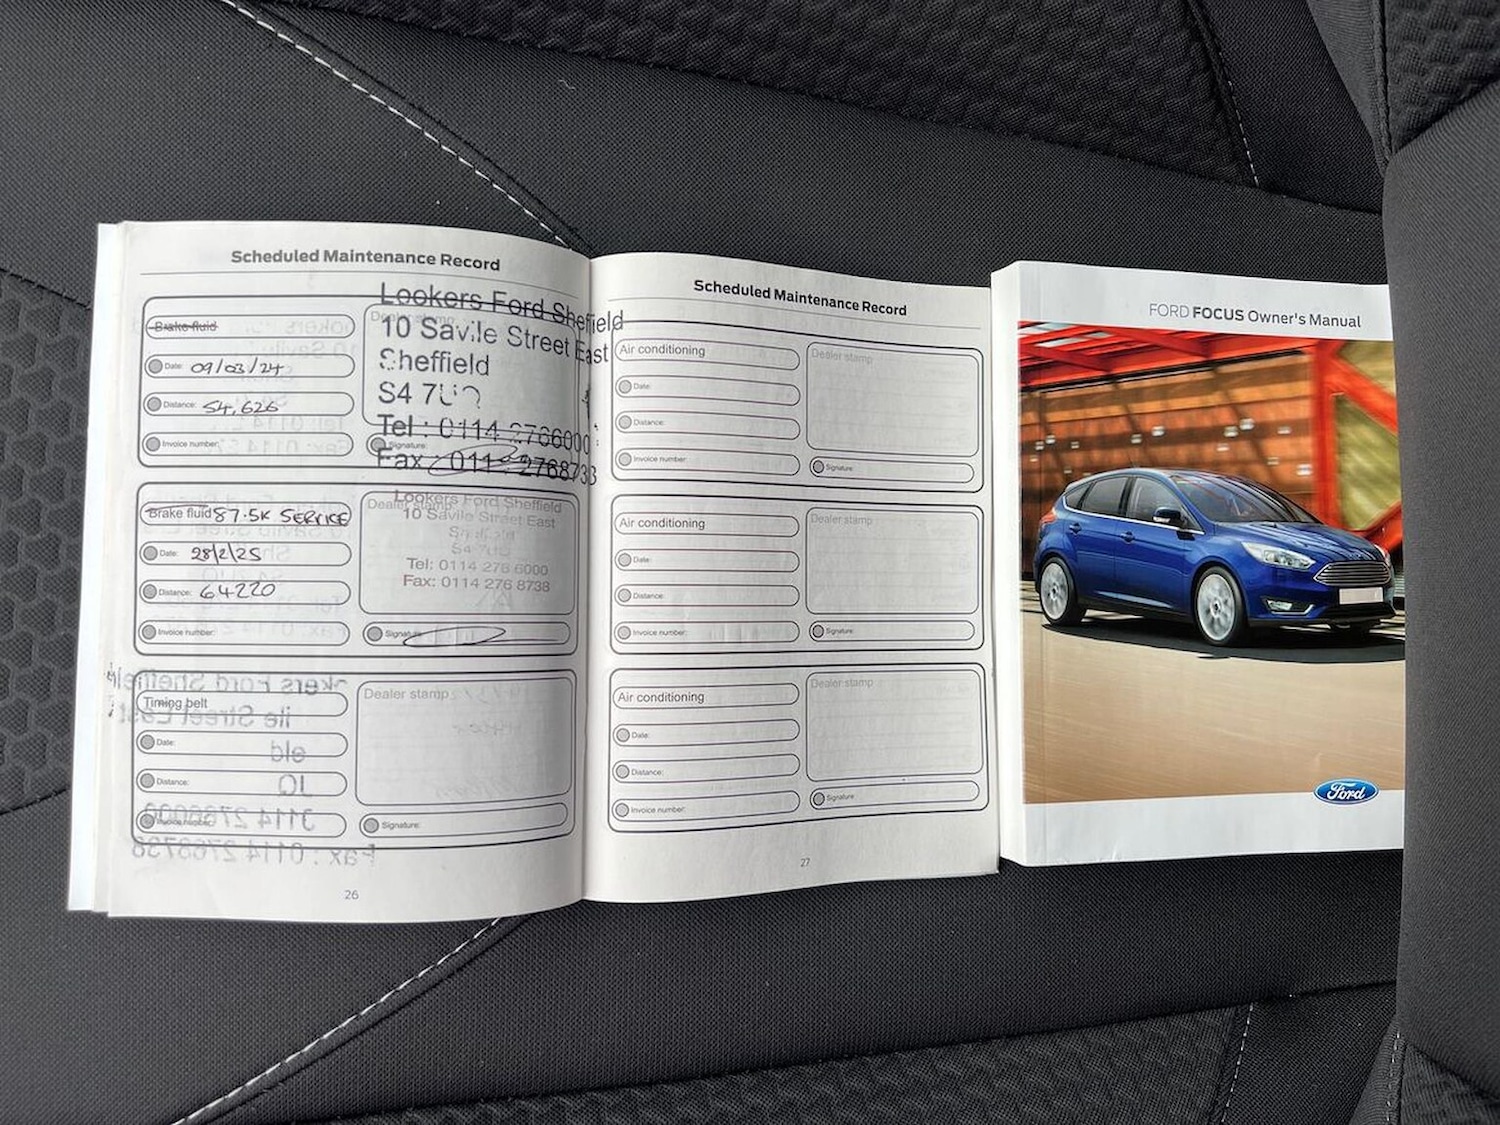 Scheduled Maintenance Record
Brake fluid
Date: 09/03/24
Distance: 54,626
Invoice number:
Dealer stamp
Lookers Ford Sheffield
10 Savile Street East
Sheffield
S4
Tel : 0114 2766000
Signature:
Fax : 0114 2768733
Brake fluid 87.5K SERVICE
Date: 28/2/25
Distance: 64220
Invoice number:
Dealer stamp
Lookers Ford Sheffield
10 Savile Street East
Tel: 0114 276 6000
Fax: 0114 276 8738
Signature:
Timing belt
Date:
Distance:
Dealer stamp
Signature:
26
Scheduled Maintenance Record
Air conditioning
Date:
Distance:
Invoice number:
Dealer stamp
Signature:
Air conditioning
Date:
Distance:
Invoice number:
Dealer stamp
Signature:
Air conditioning
Date:
Distance:
Invoice number:
Dealer stamp
Signature:
27
FORD FOCUS Owner's Manual
Ford